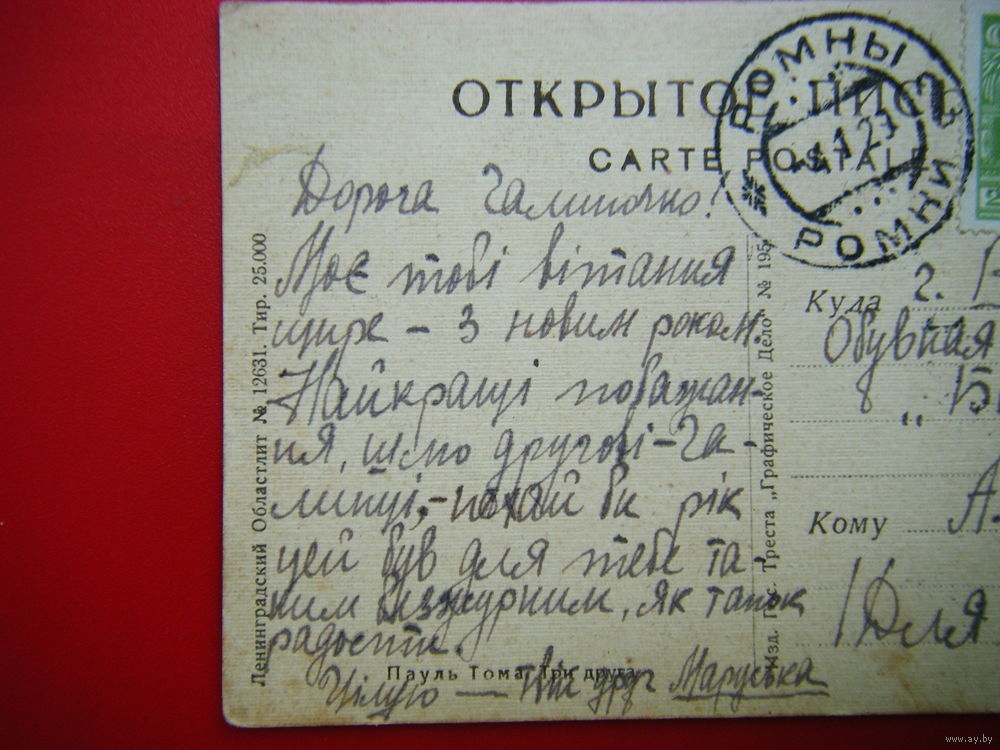 ОТКРЫТОЕ ПИСЬ
CARTE POSTAL
РОМНЫ
РОМНИ
Дорога Галиночко!
Моє тобі вітання
щире – з новим роком.
Найкращі побажан-
ня, шлю другові – Га-
линці, – нехай би рік
цей був для тебе та-
ким безжурним, як танок
радости.
Цілую — твій друг Маруська
Пауль Тома. Три друга
Ленинградский Областлит № 12631. Тир. 25.000
Изд. Гос. Треста „Графическое Дело" № 195
Куда г.
Обувная
„
Кому А
Для
www.ay.by